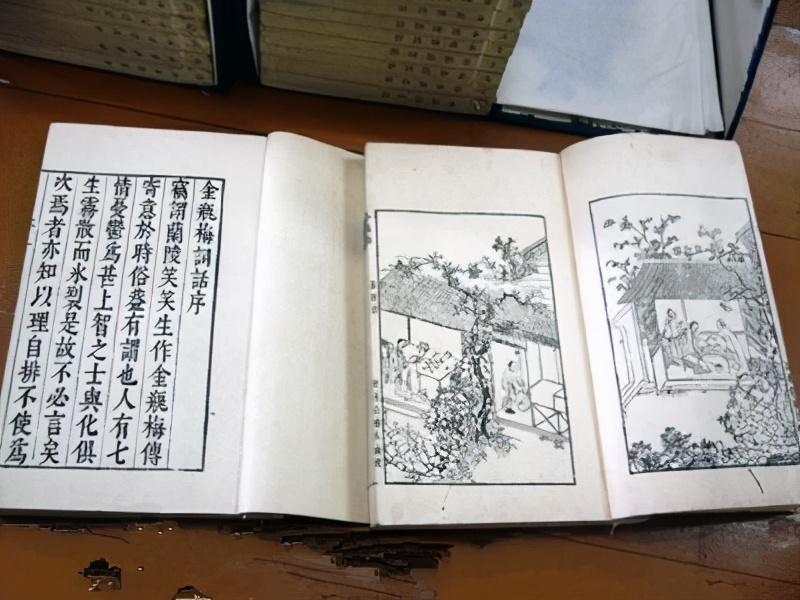 金瓶梅詞話序
竊謂蘭陵笑笑生作金瓶梅傳
寄意於時俗蓋有謂也人有七
情憂鬱爲甚上智之士與化俱
生霧散而氷裂是故不必言矣
次焉者亦知以理自排不使爲